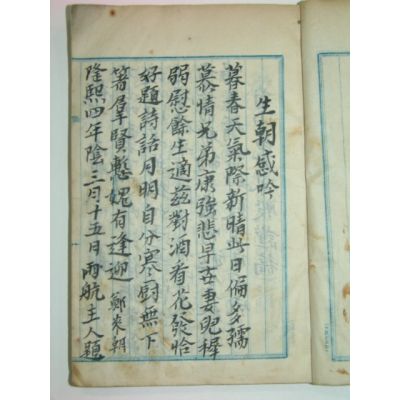 生朝感吟
暮春天氣際新晴此日偏多孺
慕情兄弟康強悲早喪妻兒穉
弱慰餘生適茲對酒看花發恰
好題詩詔月明自分寒厨無下
箸羣賢慙媿有逢迎 鄭來朝
隆熙四年陰三月十五日雨航主人題